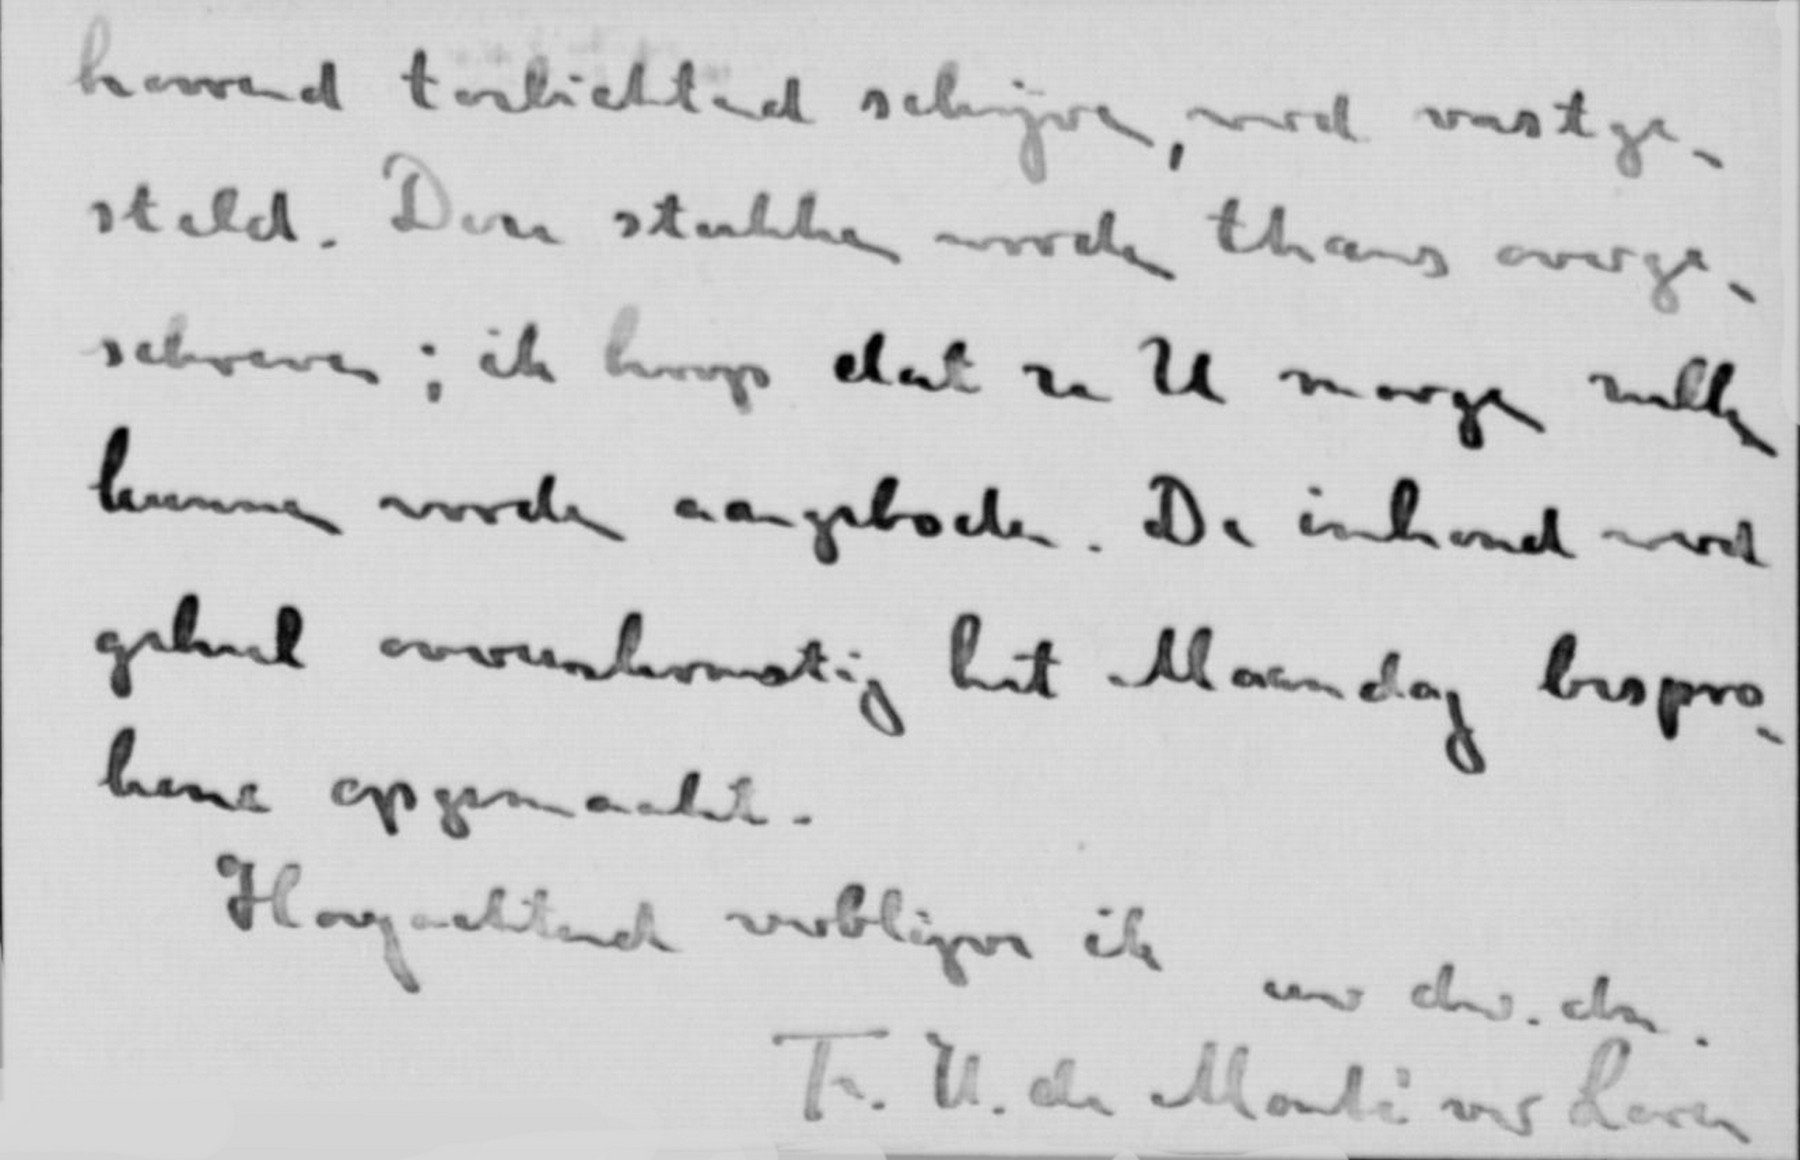 hoorend toelichtend schrijven, werd vastge-
steld. Deze stukken worden thans overge-
schreven; ik hoop dat ze U morgen zullen
kunnen worden aangeboden. De inhoud werd
geheel overeenkomstig het Maandag bespro-
kene opgemaakt.
Hoogachtend verblijve ik
uw dw. dn.
Th. U. de Monté ver Loren